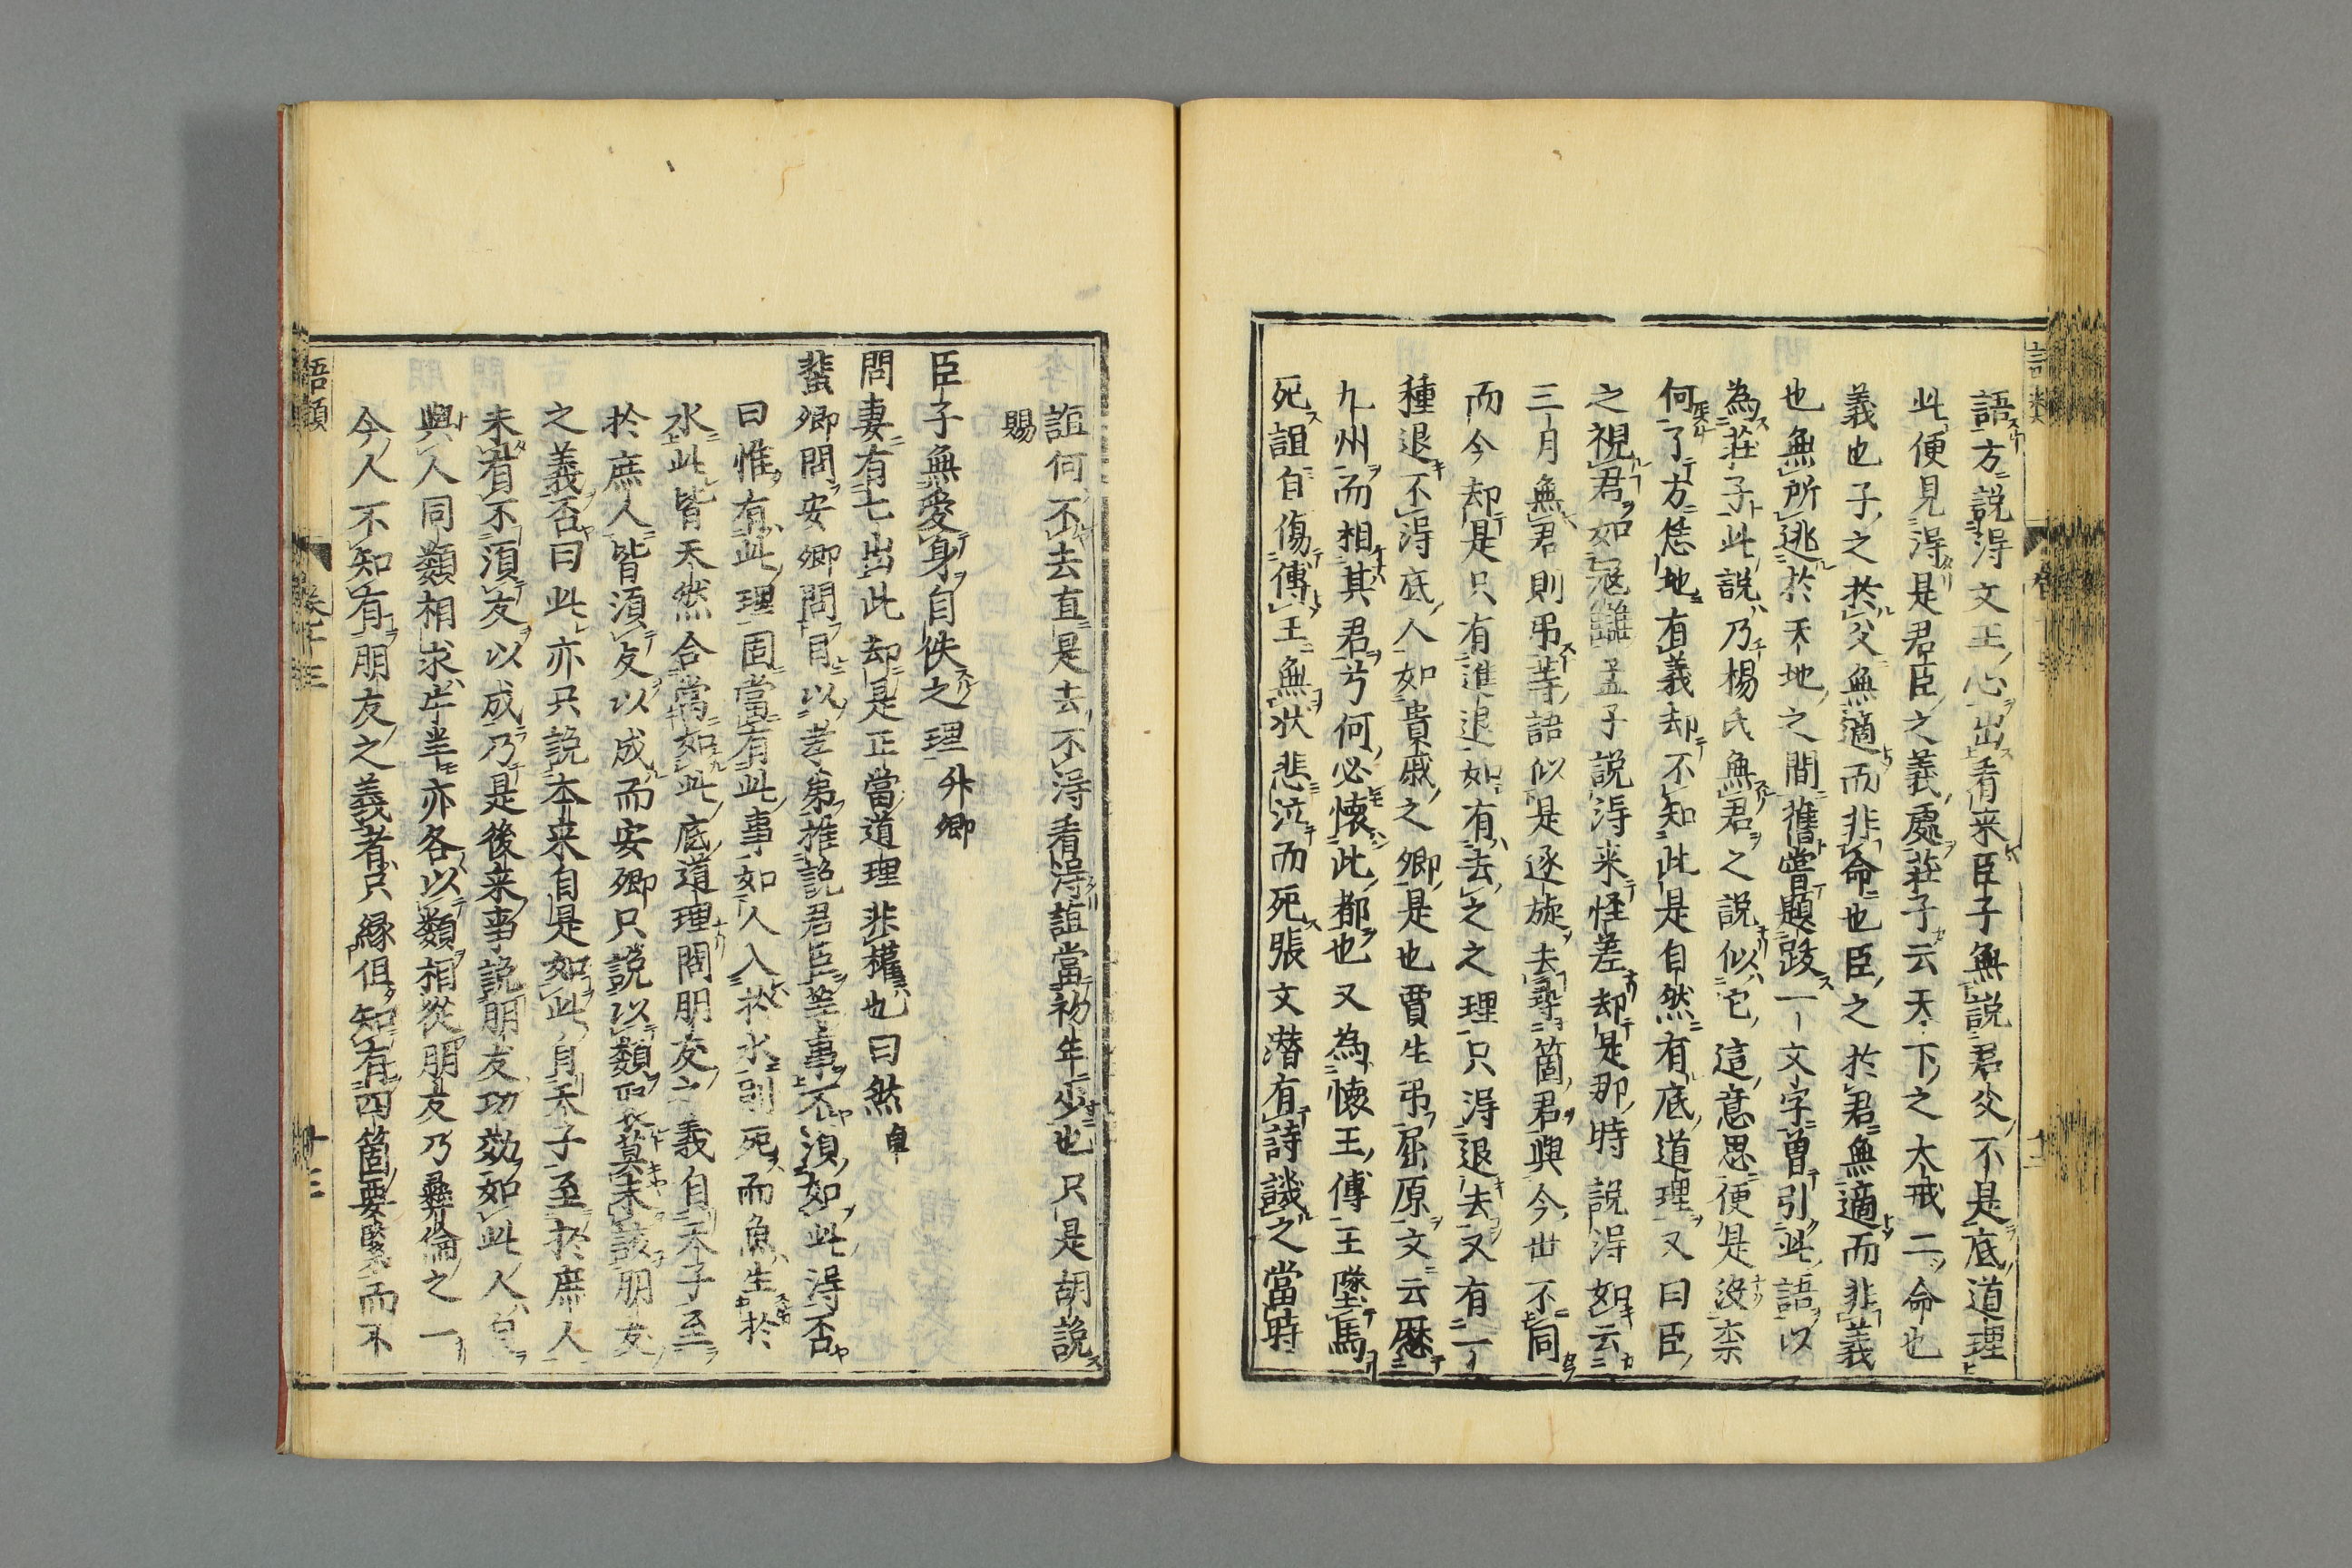 語方説得文王心出看来臣子無説君父不是底道理
此便見得是君臣之義處莊子云天下之大戒二命也
義也子之於父無適而非命也臣之於君無適而非義
也無所逃於天地之間舊嘗題跋一文字曽引此語以
為莊子此説乃楊氏無君之説似他這意思便是沒柰
何了方恁地有義却不知此是自然有底道理又曰臣
之視君如冦讎孟子説得来怪差却是那時説得如云
三月無君則弔等語似是逐旋去尋箇君與今世不同
而今却是只有進退如有去之之理只得退去又有一
種退不得底人如貴戚之卿是也賈生弔屈原文云歷
九州而相其君兮何必懷此都也又為懷王傅王墜馬
死誼自傷傅王無狀悲泣而死張文潜有詩譏之當時
誼何不去直是去不得看得誼當初年少也只是胡説
賜
臣子無愛身自佚之理 升卿
問妻有七出此却是正當道理非權也曰然 卓
蜚卿問安卿問目以孝弟推説君臣等事不須如此得否
曰惟有此理固當有此事如人入於水則死而魚生於
水此皆天然合當如此底道理問朋友之義自天子至
於庶人皆須友以成而安卿只説以類聚莫未該朋友
之義否曰此亦只説本来自是如此自天子至於庶人
未有不須友以成乃是後来事説朋友功効如此人自
與人同類相求牛羊亦各以類相從朋友乃彝倫之一
今人不知有朋友之義者只緣但知有四箇要緊而不
語類 卷十三 十三